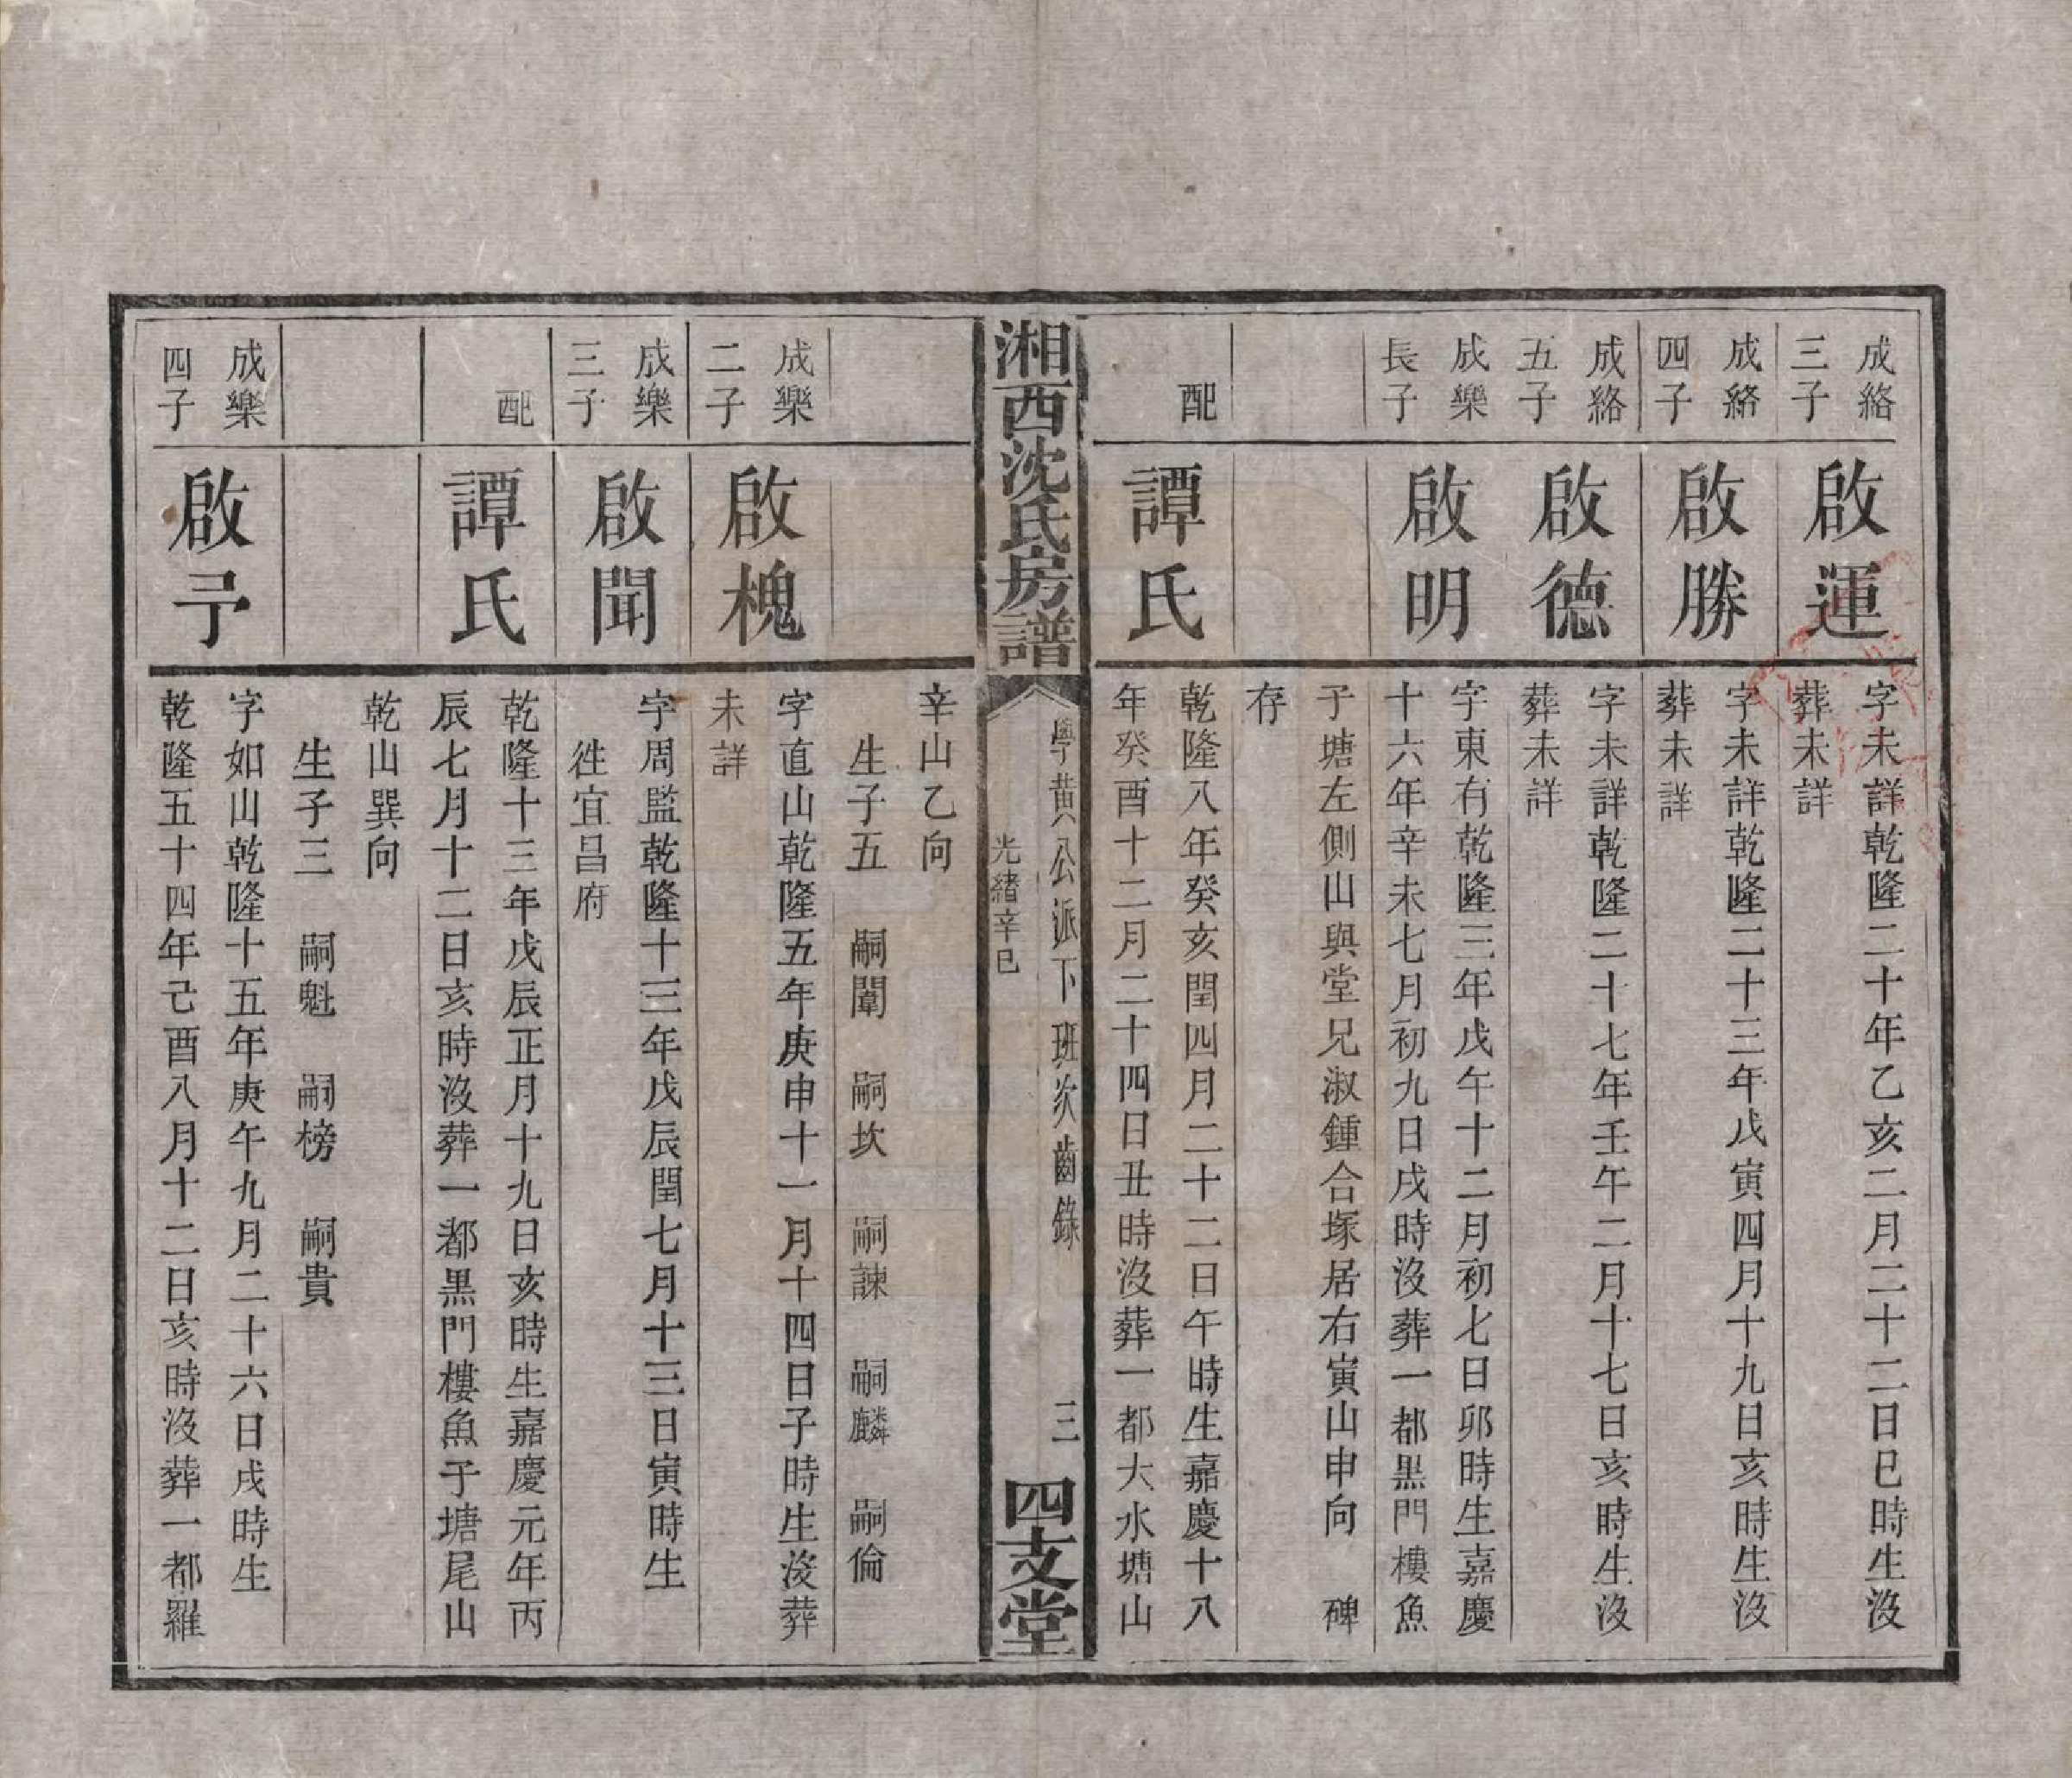 成絡
三子
啟運
字未詳乾隆二十年乙亥二月二十二日巳時生沒
葬未詳
成絡
四子
啟勝
字未詳乾隆二十三年戊寅四月十九日亥時生沒
葬未詳
成絡
五子
啟德
字未詳乾隆二十七年壬午二月十七日亥時生沒
葬未詳
成樂
長子
啟明
字東有乾隆三年戊午十二月初七日卯時生嘉慶
十六年辛未七月初九日戌時沒葬一都黑門樓魚
子塘左側山與堂兄淑鍾合塚居右寅山申向 碑
存
配
譚氏
乾隆八年癸亥閏四月二十二日午時生嘉慶十八
年癸酉十二月二十四日丑時沒葬一都大水塘山
湘西沈氏房譜
學黃公派下班次齒錄
光緒辛巳
三
四支堂
辛山乙向
生子五 嗣闈 嗣坎 嗣諫 嗣麟 嗣倫
成樂
二子
啟槐
字直山乾隆五年庚申十一月十四日子時生沒葬
未詳
成樂
三子
啟聞
字周監乾隆十三年戊辰閏七月十三日寅時生
徃宜昌府
配
譚氏
乾隆十三年戊辰正月十九日亥時生嘉慶元年丙
辰七月十二日亥時沒葬一都黑門樓魚子塘尾山
乾山巽向
生子三 嗣魁 嗣榜 嗣貴
成樂
四子
啟予
字如山乾隆十五年庚午九月二十六日戌時生
乾隆五十四年己酉八月十二日亥時沒葬一都羅